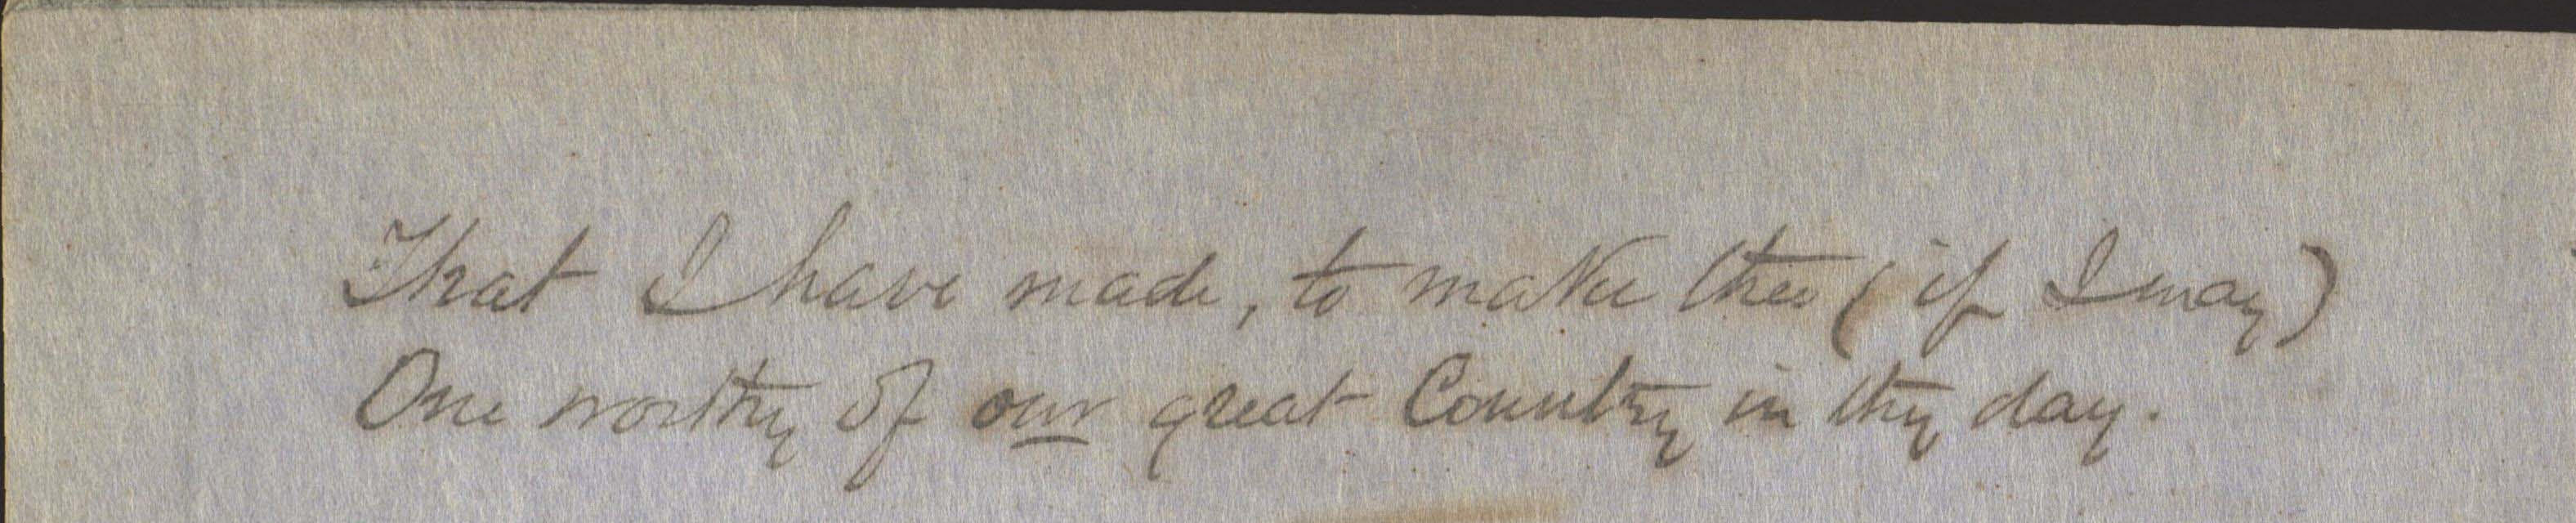 That I have made, to make thee (if I may)
One worthy of our great Country in thy day.